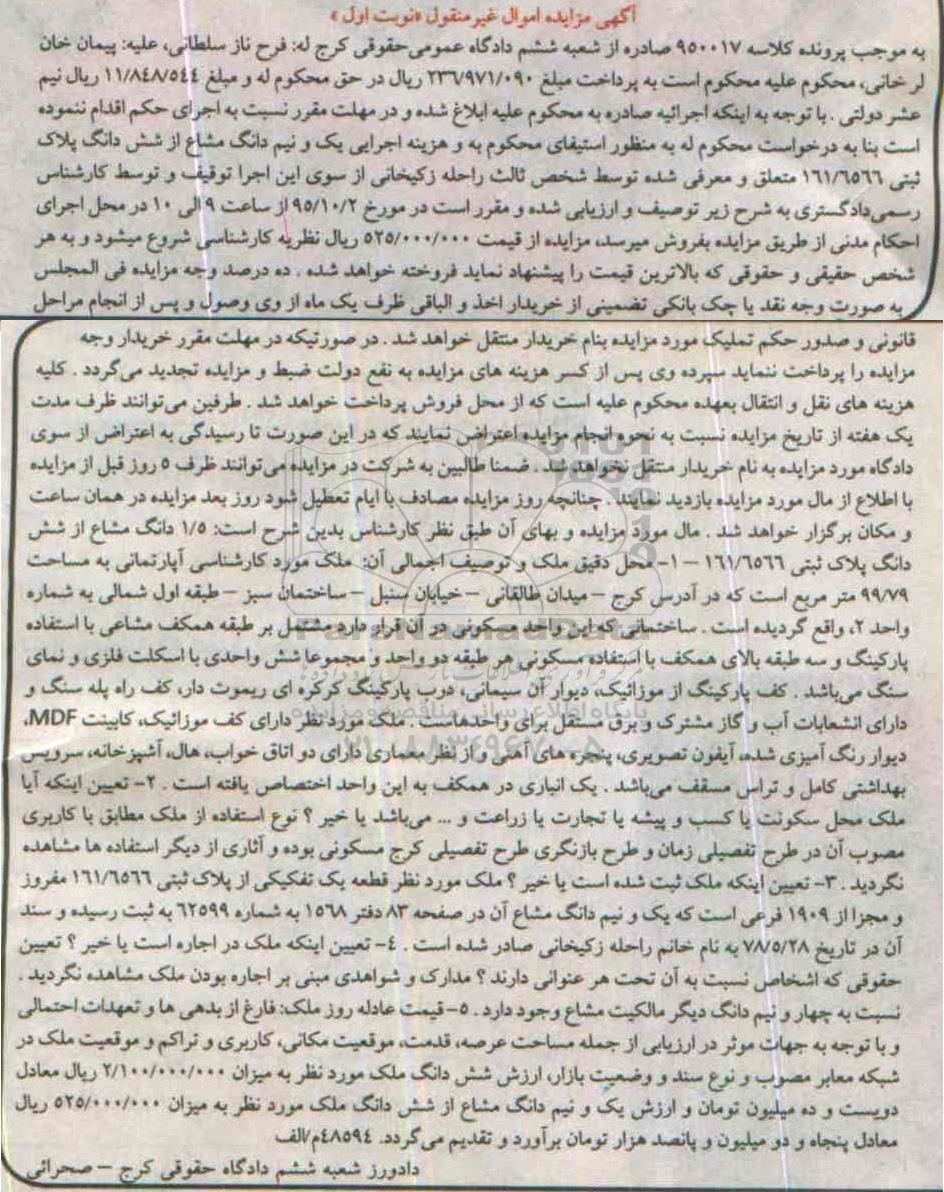 آگهی مزایده اموال غیرمنقول «نوبت اول»
به موجب پرونده کلاسه ۹۵۰۰۱۷ صادره از شعبه ششم دادگاه عمومی‌حقوقی کرج له: فرح ناز سلطانی، علیه: پیمان خان
لر خانی، محکوم علیه محکوم است به پرداخت مبلغ ۲۳۶/۹۷۱/۰۹۰ ریال در حق محکوم له و مبلغ ۱۱/۸۴۸/۵۴۴ ریال نیم
عشر دولتی . با توجه به اینکه اجرائیه صادره به محکوم علیه ابلاغ شده و در مهلت مقرر نسبت به اجرای حکم اقدام ننموده
است بنا به درخواست محکوم له به منظور استیفای محکوم به و هزینه اجرایی یک و نیم دانگ مشاع از شش دانگ پلاک
ثبتی ۱۶۱/۶۵۶۶ متعلق و معرفی شده توسط شخص ثالث راحله زکیخانی از سوی این اجرا توقیف و توسط کارشناس
رسمی‌دادگستری به شرح زیر توصیف و ارزیابی شده و مقرر است در مورخ ۹۵/۱۰/۲ از ساعت ۹ الی ۱۰ در محل اجرای
احکام مدنی از طریق مزایده بفروش میرسد، مزایده از قیمت ۵۲۵/۰۰۰/۰۰۰ ریال نظریه کارشناسی شروع میشود و به هر
شخص حقیقی و حقوقی که بالاترین قیمت را پیشنهاد نماید فروخته خواهد شد . ده درصد وجه مزایده فی المجلس
به صورت وجه نقد یا چک بانکی تضمینی از خریدار اخذ و الباقی ظرف یک ماه از وی وصول و پس از انجام مراحل
قانونی و صدور حکم تملیک مورد مزایده بنام خریدار منتقل خواهد شد . در صورتیکه در مهلت مقرر خریدار وجه
مزایده را پرداخت ننماید سپرده وی پس از کسر هزینه های مزایده به نفع دولت ضبط و مزایده تجدید می‌گردد . کلیه
هزینه های نقل و انتقال بعهده محکوم علیه است که از محل فروش پرداخت خواهد شد . طرفین می‌توانند ظرف مدت
یک هفته از تاریخ مزایده نسبت به نحوه انجام مزایده اعتراض نمایند که در این صورت تا رسیدگی به اعتراض از سوی
دادگاه مورد مزایده به نام خریدار منتقل نخواهد شد . ضمنا طالبین به شرکت در مزایده می‌توانند ظرف ۵ روز قبل از مزایده
با اطلاع از مال مورد مزایده بازدید نمایند . چنانچه روز مزایده مصادف با ایام تعطیل شود روز بعد مزایده در همان ساعت
و مکان برگزار خواهد شد . مال مورد مزایده و بهای آن طبق نظر کارشناس بدین شرح است: ۱/۵ دانگ مشاع از شش
دانگ پلاک ثبتی ۱۶۱/۶۵۶۶ – ۱- محل دقیق ملک و توصیف اجمالی آن: ملک مورد کارشناسی آپارتمانی به مساحت
۹۹/۷۹ متر مربع است که در آدرس کرج – میدان طالقانی – خیابان سنبل – ساختمان سبز – طبقه اول شمالی به شماره
واحد ۲، واقع گردیده است . ساختمانی که این واحد مسکونی در آن قرار دارد مشتمل بر طبقه همکف مشاعی با استفاده
پارکینگ و سه طبقه بالای همکف با استفاده مسکونی هر طبقه دو واحد و مجموعا شش واحدی با اسکلت فلزی و نمای
سنگ می‌باشد . کف پارکینگ از موزائیک، دیوار آن سیمانی، درب پارکینگ کرکره ای ریموت دار، کف راه پله سنگ و
دارای انشعابات آب و گاز مشترک و برق مستقل برای واحدهاست . ملک مورد نظر دارای کف موزائیک، کابینت MDF،
دیوار رنگ آمیزی شده، آیفون تصویری، پنجره های آهنی و از نظر معماری دارای دو اتاق خواب، هال، آشپزخانه، سرویس
بهداشتی کامل و تراس مسقف می‌باشد . یک انباری در همکف به این واحد اختصاص یافته است . ۲- تعیین اینکه آیا
ملک محل سکونت یا کسب و پیشه یا تجارت یا زراعت و ... می‌باشد یا خیر ؟ نوع استفاده از ملک مطابق با کاربری
مصوب آن در طرح تفصیلی زمان و طرح بازنگری طرح تفصیلی کرج مسکونی بوده و آثاری از دیگر استفاده ها مشاهده
نگردید . ۳- تعیین اینکه ملک ثبت شده است یا خیر ؟ ملک مورد نظر قطعه یک تفکیکی از پلاک ثبتی ۱۶۱/۶۵۶۶ مفروز
و مجزا از ۱۹۰۹ فرعی است که یک و نیم دانگ مشاع آن در صفحه ۸۳ دفتر ۱۵۶۸ به شماره ۶۲۵۹۹ به ثبت رسیده و سند
آن در تاریخ ۷۸/۵/۲۸ به نام خانم راحله زکیخانی صادر شده است . ۴- تعیین اینکه ملک در اجاره است یا خیر ؟ تعیین
حقوقی که اشخاص نسبت به آن تحت هر عنوانی دارند ؟ مدارک و شواهدی مبنی بر اجاره بودن ملک مشاهده نگردید .
نسبت به چهار و نیم دانگ دیگر مالکیت مشاع وجود دارد . ۵- قیمت عادله روز ملک: فارغ از بدهی ها و تعهدات احتمالی
و با توجه به جهات موثر در ارزیابی از جمله مساحت عرصه، قدمت، موقعیت مکانی، کاربری و تراکم و موقعیت ملک در
شبکه معابر مصوب و نوع سند و وضعیت بازار، ارزش شش دانگ ملک مورد نظر به میزان ۲/۱۰۰/۰۰۰/۰۰۰ ریال معادل
دویست و ده میلیون تومان و ارزش یک و نیم دانگ مشاع از شش دانگ ملک مورد نظر به میزان ۵۲۵/۰۰۰/۰۰۰ ریال
معادل پنجاه و دو میلیون و پانصد هزار تومان برآورد و تقدیم می‌گردد. ۴۸۵۹۴م/الف
دادورز شعبه ششم دادگاه حقوقی کرج – صحرائی